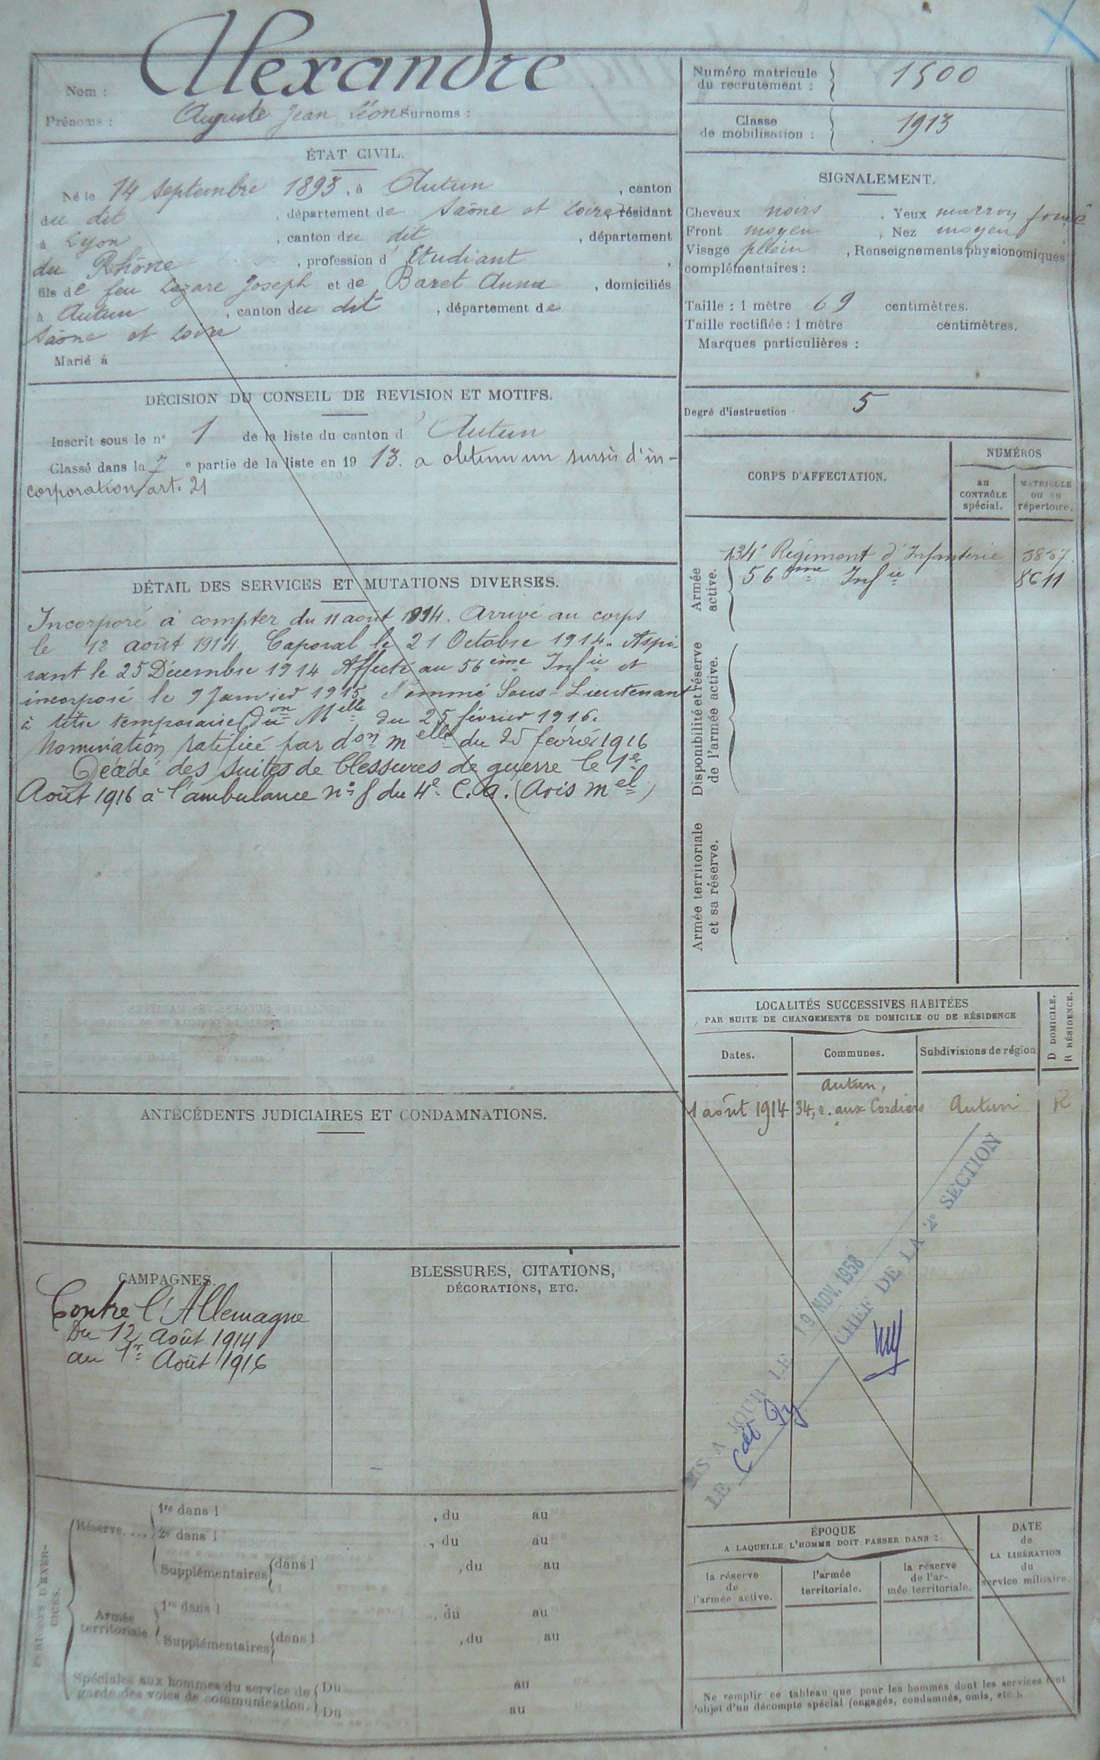 Nom : Alexandre
Prénoms : Auguste Jean Léon Surnoms :
ÉTAT CIVIL.
Né le 14 septembre 1893, à Autun, canton
du dit, département de Saône et Loire, résidant
à Lyon, canton du dit, département
du Rhône, profession d'Etudiant,
fils de feu Lazare Joseph et de Baret Anna, domiciliés
à Autun, canton du dit, département de
Saône et Loire
Marié à
DÉCISION DU CONSEIL DE REVISION ET MOTIFS.
Inscrit sous le n° 1 de la liste du canton d'Autun
Classé dans la 7 e partie de la liste en 1913. a obtenu un sursis d'in-
corporation art. 21
DÉTAIL DES SERVICES ET MUTATIONS DIVERSES.
Incorporé à compter du 11 août 1914. Arrivé au corps
le 12 août 1914. Caporal le 21 Octobre 1914. Aspi
rant le 25 Décembre 1914 Affecté au 56 ème Inf ie et
incorporé le 9 Janvier 1915. Nommé Sous-Lieutenant
à titre temporaire (D on M elle du 25 février 1916.
Nomination ratifiée par d on m elle du 25 février 1916
Décédé des suites de blessures de guerre le 1er
Août 1916 à l'ambulance n° 8 du 4e C.A. (Avis m el)
ANTÉCÉDENTS JUDICIAIRES ET CONDAMNATIONS.
CAMPAGNES.
Contre l'Allemagne
Du 12 Août 1914
au 1er Août 1916
BLESSURES, CITATIONS,
DÉCORATIONS, ETC.
PÉRIODES D'EXER-
CICES.
Réserve....
1re dans l , du au
2e dans l , du au
Supplémentaires dans l , du au
Armée
territoriale
1re dans l , du au
Supplémentaires dans l , du au
Spéciales aux hommes du service de
garde des voies de communication.
Du au
Du au
Numéro matricule
du recrutement : 1500
Classe
de mobilisation : 1913
SIGNALEMENT.
Cheveux noirs, Yeux marron foncé
Front moyen, Nez moyen
Visage plein, Renseignements physionomiques
complémentaires :
Taille : 1 mètre 69 centimètres.
Taille rectifiée : 1 mètre centimètres.
Marques particulières :
Degré d'instruction : 5
CORPS D'AFFECTATION.
NUMÉROS
au
CONTRÔLE
spécial.
MATRICULE
ou au
répertoire.
Armée
active.
134e Régiment d'Infanterie 3857
56 ème Inf ie 8611
Disponibilité et réserve
de l'armée active.
Armée territoriale
et sa réserve.
LOCALITÉS SUCCESSIVES HABITÉES
PAR SUITE DE CHANGEMENTS DE DOMICILE OU DE RÉSIDENCE
D DOMICILE.
R RÉSIDENCE.
Dates. Communes. Subdivisions de région
Autun,
1 août 1914 34, r. aux Cordiers Autun R
MIS A JOUR LE 19 NOV. 1958
LE CHEF DE LA 2e SECTION
ÉPOQUE
A LAQUELLE L'HOMME DOIT PASSER DANS :
la réserve
de
l'armée active.
l'armée
territoriale.
la réserve
de l'ar-
mée territoriale.
DATE
de
LA LIBÉRATION
du
service militaire.
Ne remplir ce tableau que pour les hommes dont les services font
l'objet d'un décompte spécial (engagés, condamnés, omis, etc.).